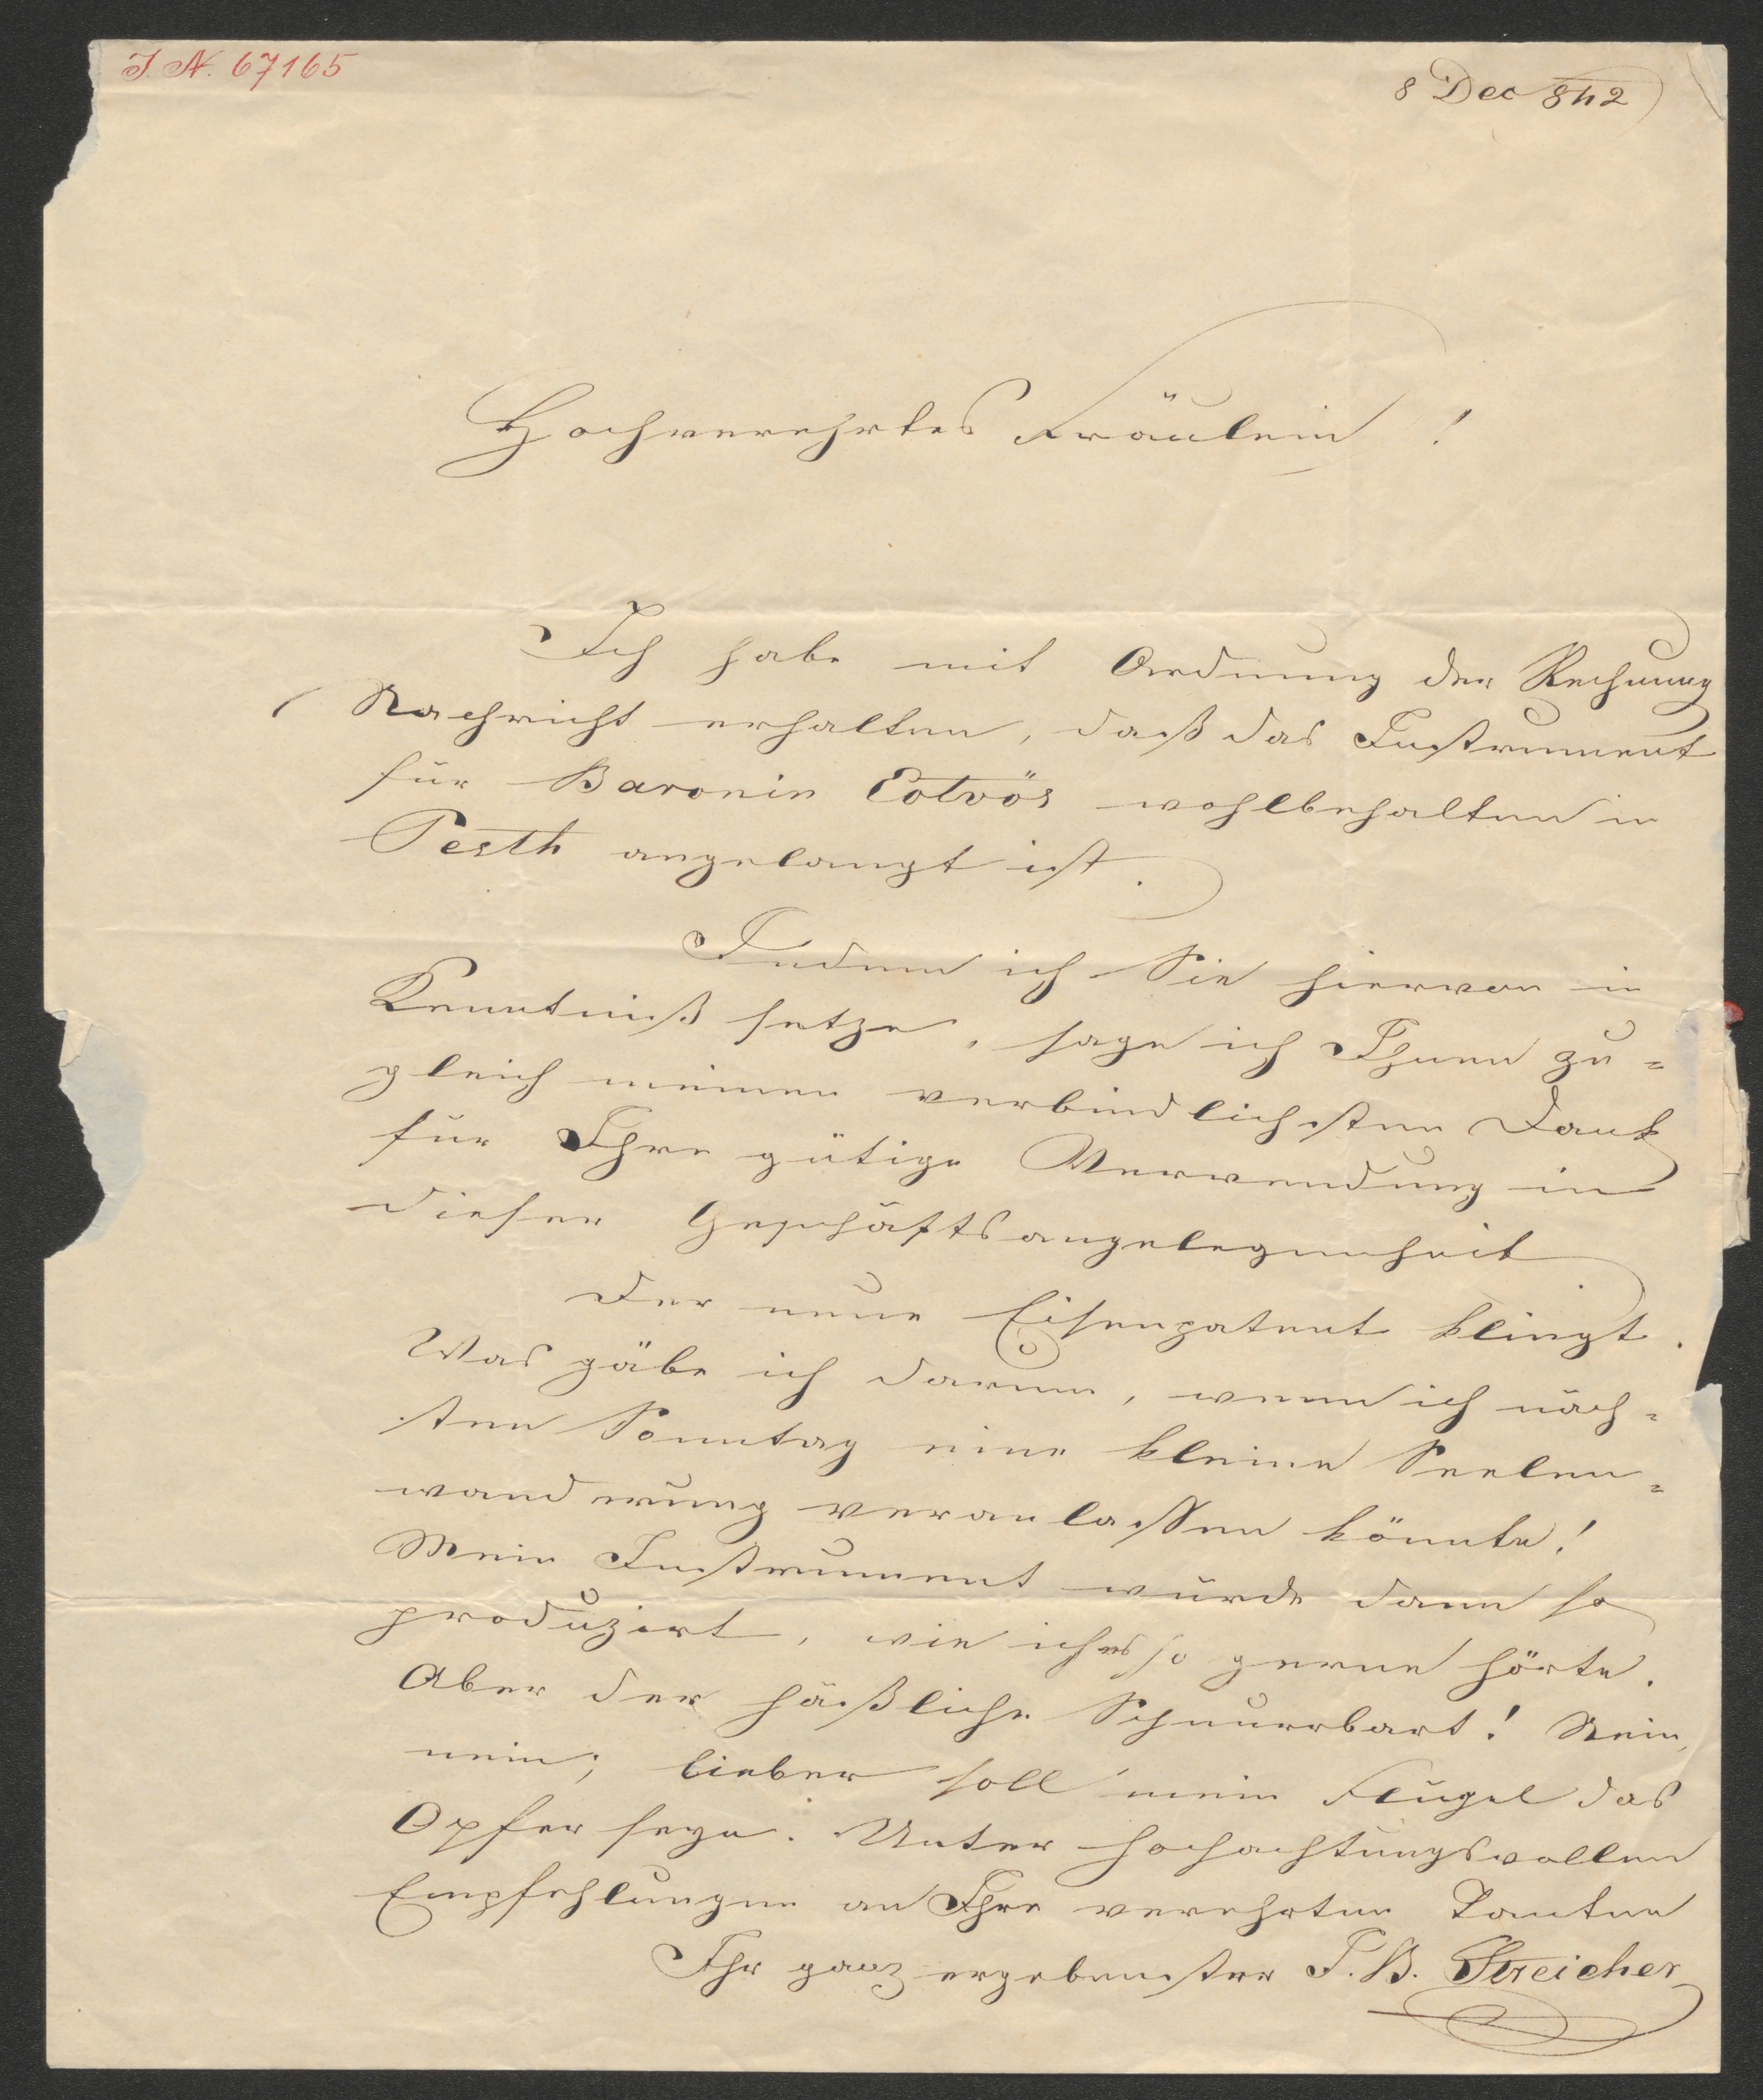 I. N. 67165
8 Dec 842
Hochverehrtes Fräulein !
Ich habe mit Ordnung der Rechnung
Nachricht erhalten, daß das Instrument
für Baronin Eotvös wohlbehalten in
Pesth angelangt ist.
Indem ich Sie hiervon in
Kenntniß setze, sage ich Ihnen zu=
gleich meinen verbindlichsten Dank
für Ihre gütige Verwendung in
dieser Geschäftsangelegenheit
Der neue Eisenpatent klingt.
Was gäbe ich darum, wenn ich näch=
sten Sonntag eine kleine Seelen=
wanderung veranlassen könnte!
Mein Instrument würde dann so
produzirt, wie ich es so gerne hörte.
Aber der häßliche Schnurrbart! Nein,
nein; lieber soll mein Flügel das
Opfer seyn. Unter hochachtungsvollen
Empfehlungen an Ihre verehrten Tanten
Ihr ganz ergebenster J. B. Streicher